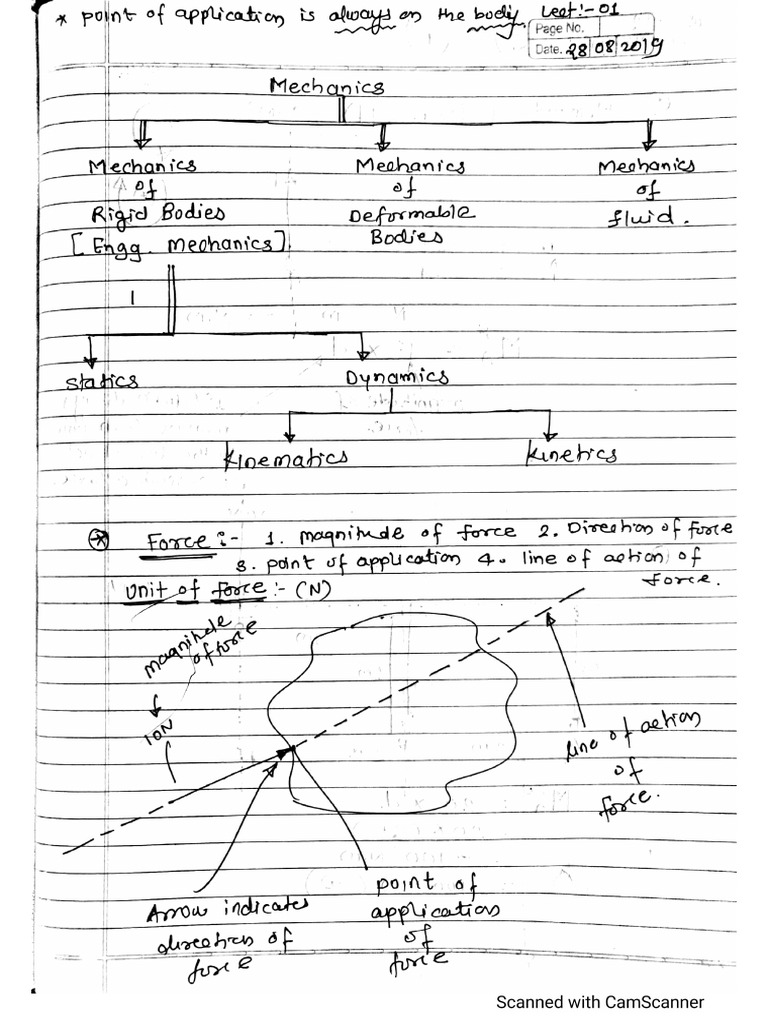 * point of application is always on the body. Lect:-01
Page No.
Date. 28 08 2019
Mechanics
Mechanics Mechanics Mechanics
of of of
Rigid Bodies Deformable fluid.
[Engg. Mechanics] Bodies
1
Statics Dynamics
Kinematics Kinetics
* Force :- 1. magnitude of force 2. Direction of force
3. point of application 4. line of action of
force.
Unit of force :- (N)
magnitude
of force
10N
line of action
of
force.
Arrow indicates
direction of
force
point of
application
of
force
Scanned with CamScanner